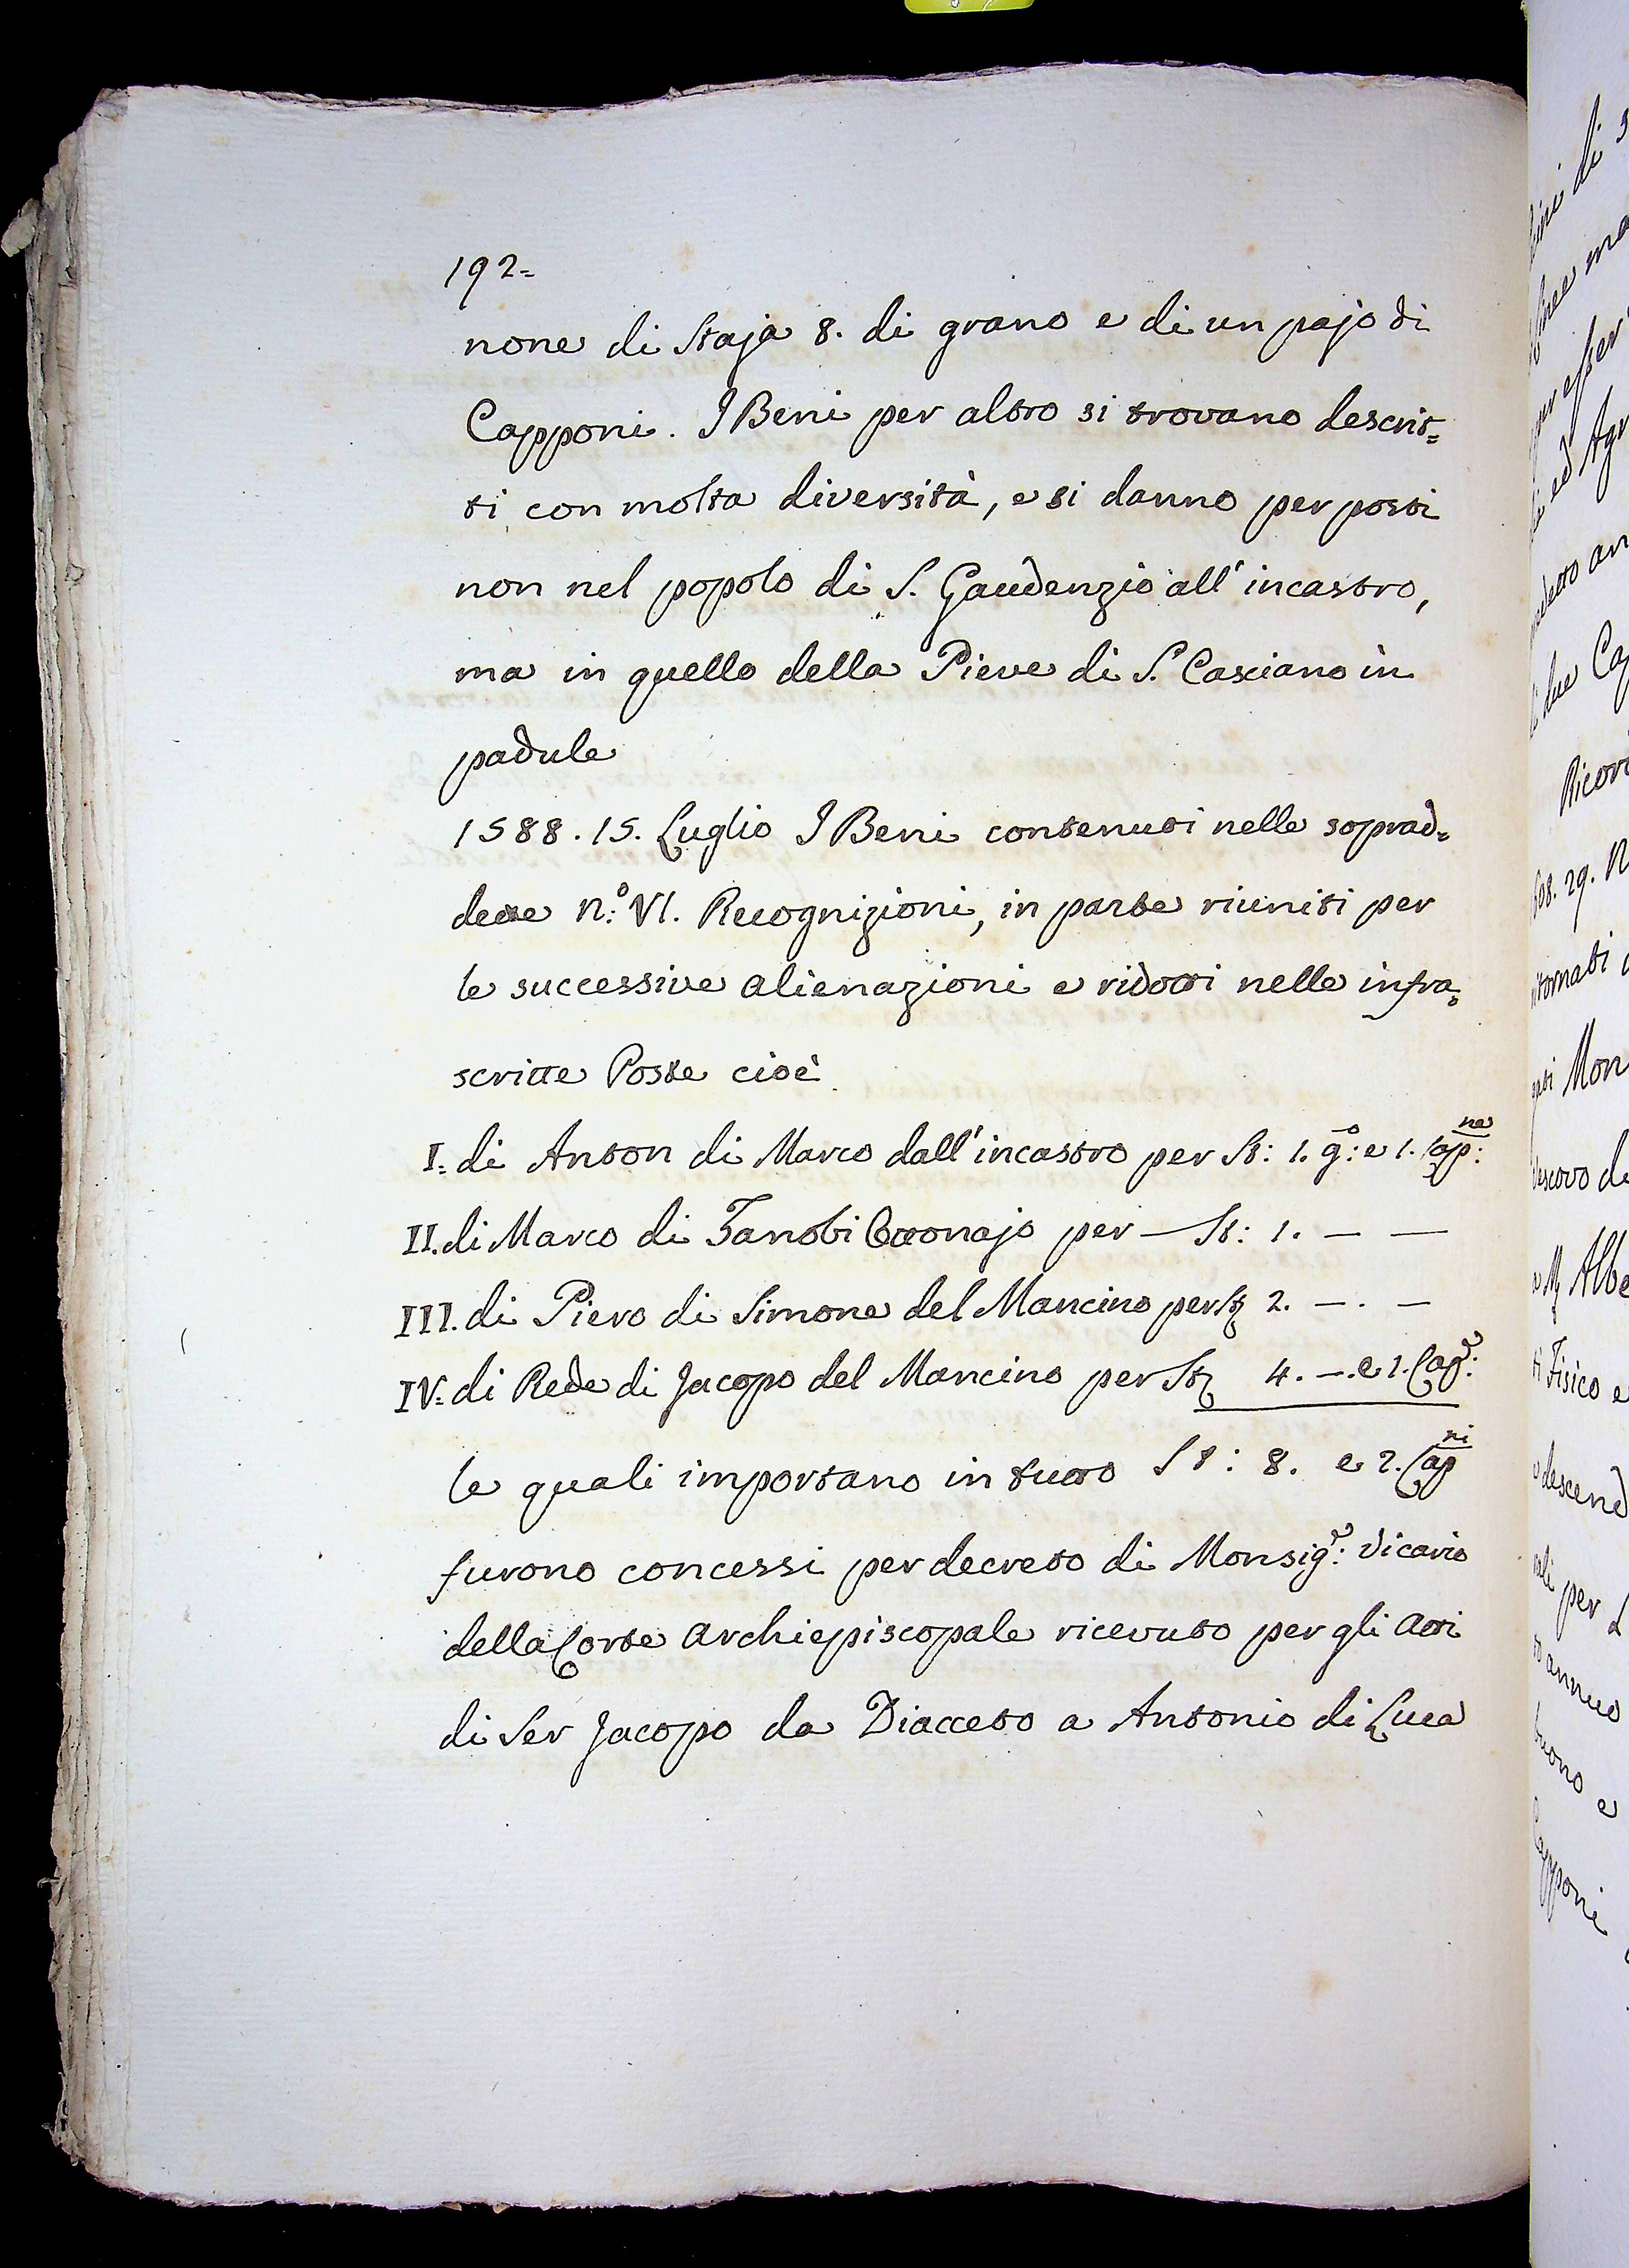 192=
none di Staja 8. di grano e di un pajo di
Capponi. I Beni per altro si trovano descrit=
ti con molta diversità, e si danno per posti
non nel popolo di S. Gaudenzio all'incastro,
ma in quello della Pieve di S. Casciano in
padule
1588. 15. Luglio I Beni contenuti nelle soprad=
dette n:º VI. Recognizioni, in parte riuniti per
le successive alienazioni e ridotti nelle infra=
scritte Poste cioè
I= di Anton di Marco dall'incastro per St: 1. g:º e 1. Cap:ne
II. di Marco di Zanobi Bottonajo per — St: 1. — —
III. di Piero di Simone del Mancino per St 2. —. —
IV= di Rede di Jacopo del Mancino per St 4. —. e 1. Cap:e
le quali importano in tutto St: 8. e 2. Capni
furono concessi per decreto di Monsig:r Vicario
della Corte Archiepiscopale ricevuto per gli Atti
di Ser Jacopo da Diacceto a Antonio di Luca